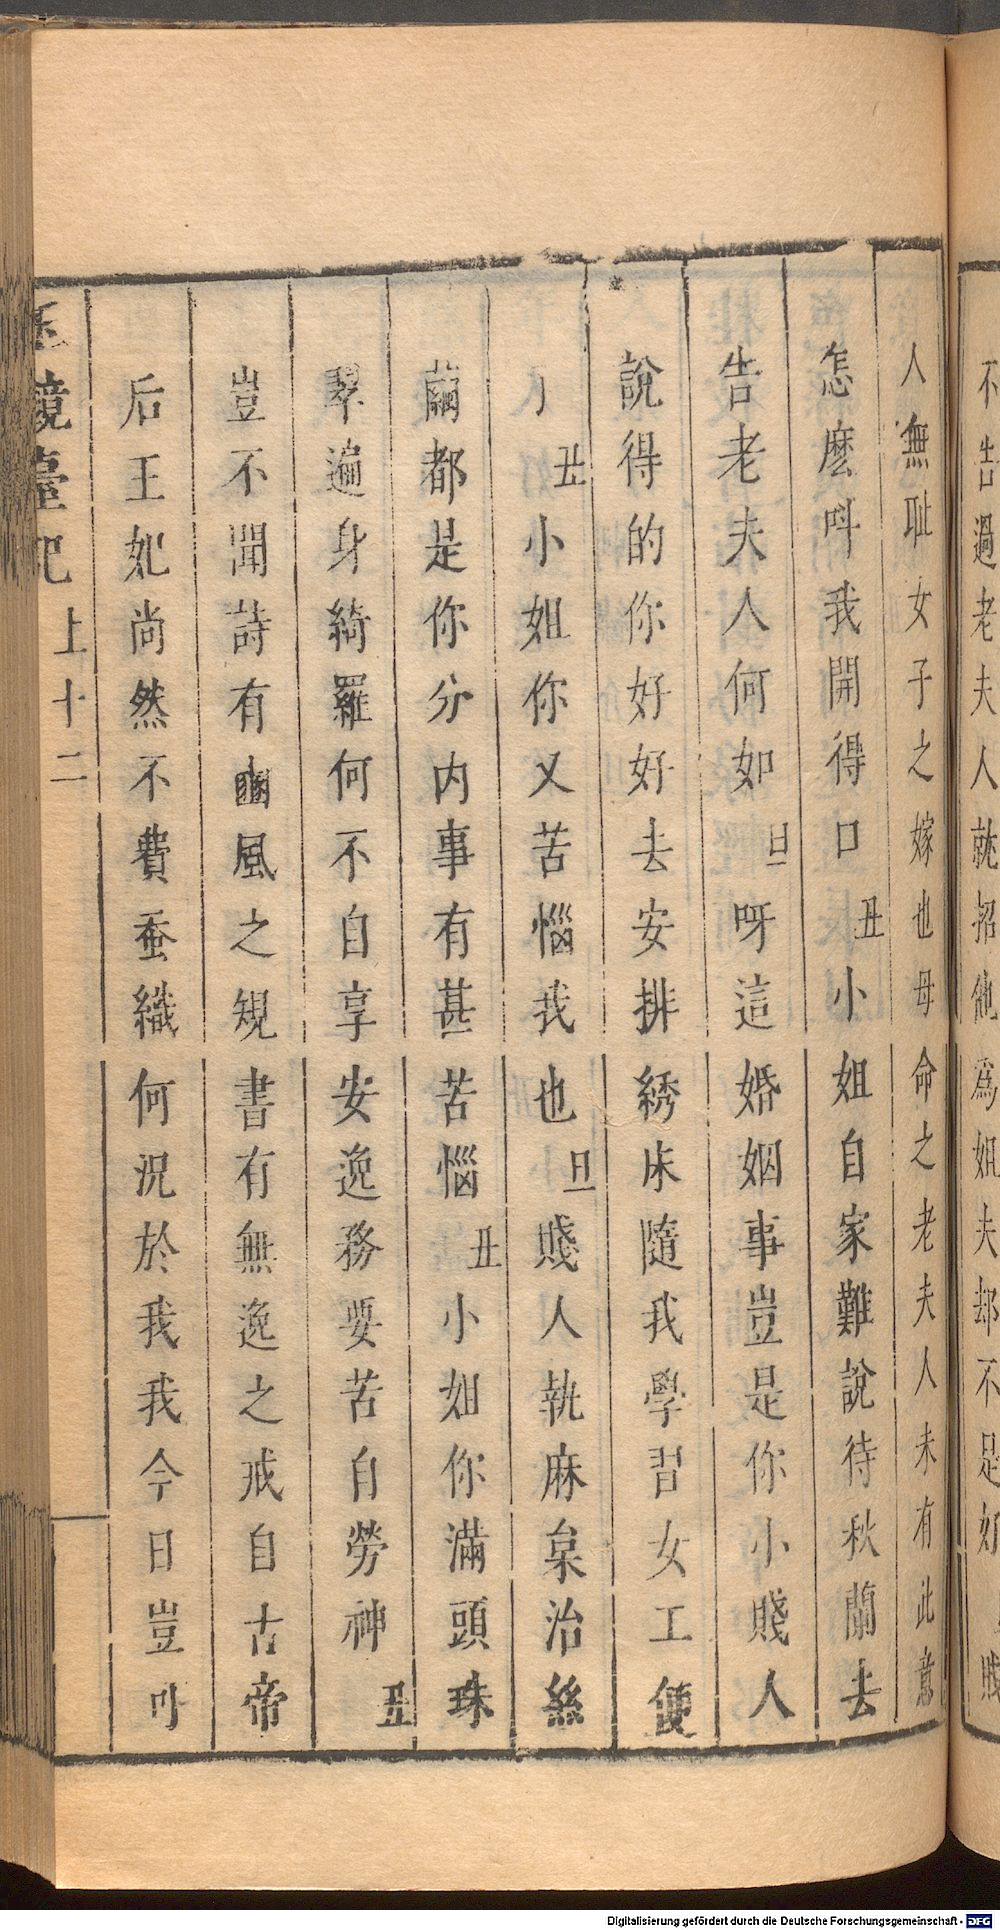 不告過老夫人就招他為姐夫却不是好 賤
人無耻女子之嫁也母命之老夫人未有此意
怎麽呌我開得口 丑 小姐自家難說待秋蘭去
告老夫人何如 旦 呀這婚姻事豈是你小賤人
說得的你好好去安排綉床隨我學習女工便
了 丑 小姐你又苦惱我也 旦 賤人執麻枲治絲
繭都是你分内事有甚苦惱 丑 小姐你滿頭珠
翠遍身綺羅何不自享安逸務要苦自勞神 丑
豈不聞詩有豳風之規書有無逸之戒自古帝
后王妃尚然不費蚕織何況於我我今日豈可
玉鏡臺記 上 十二
Digitalisierung gefördert durch die Deutsche Forschungsgemeinschaft - DFG